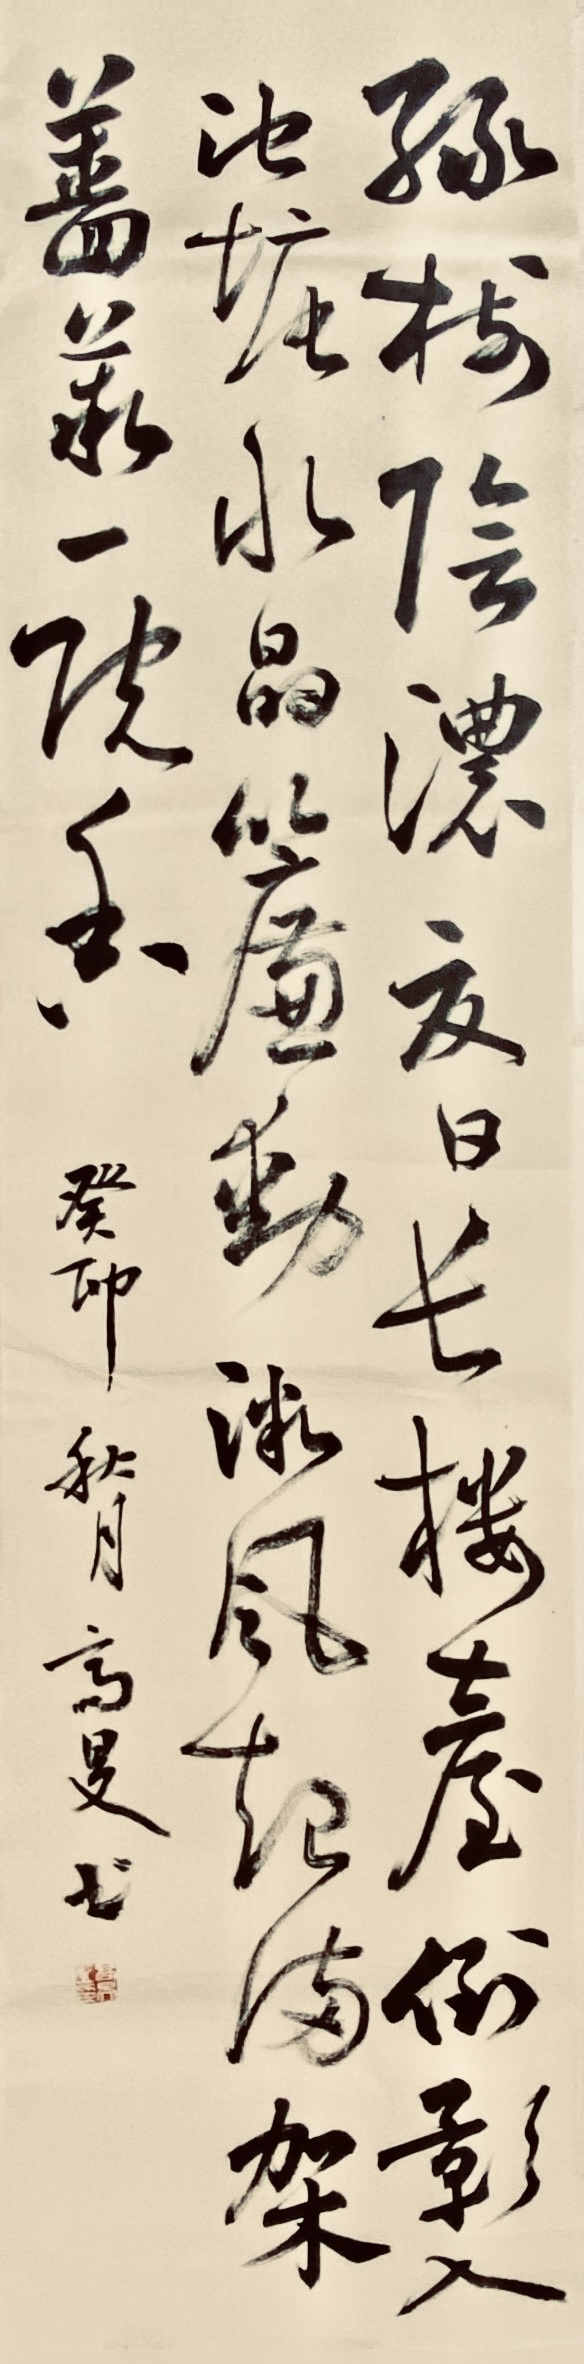 綠樹陰濃夏日长楼臺倒影入
池塘水晶簾動微風起满架
薔薇一院香
癸卯秋月高叟书